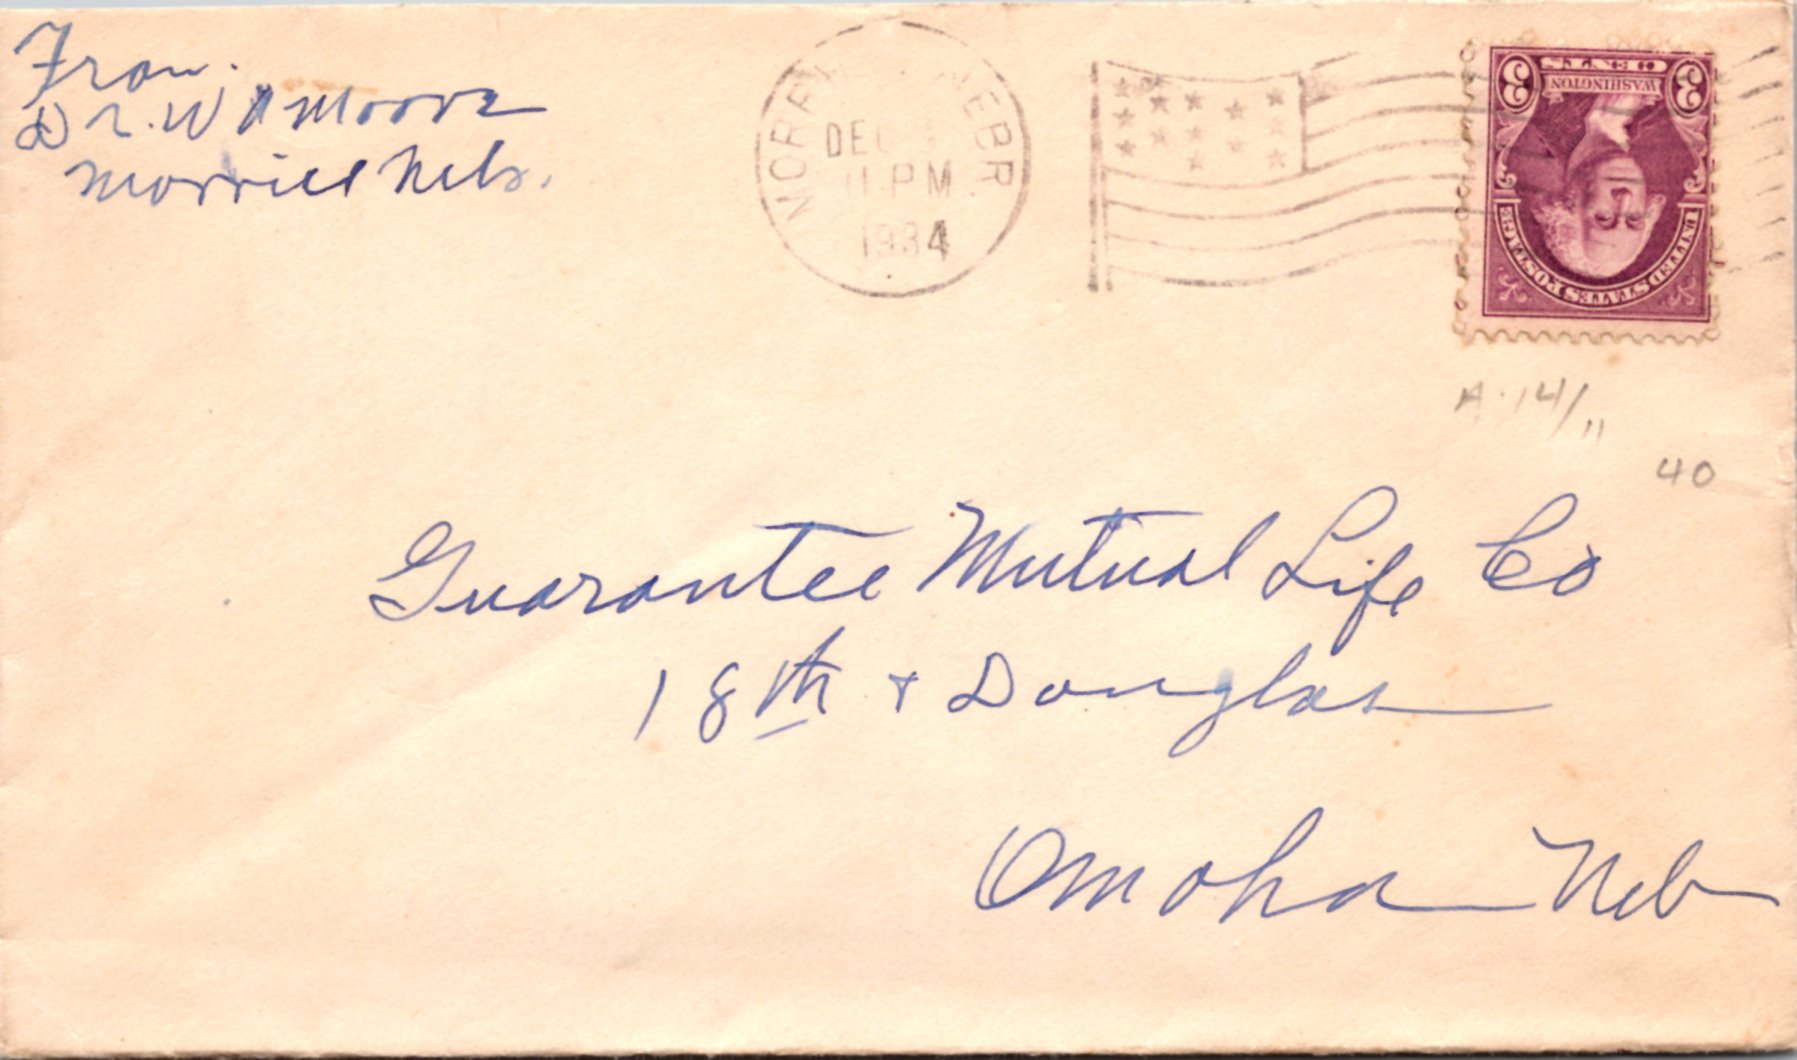 From.
Dr. W A Moore
Morrill Neb.
MORR NEBR.
DEC
11 PM
1934
3 CENTS 3
WASHINGTON
UNITED STATES POSTAGE
A.14/11
40
Guarantee Mutual Life Co
18th + Douglas
Omaha Neb